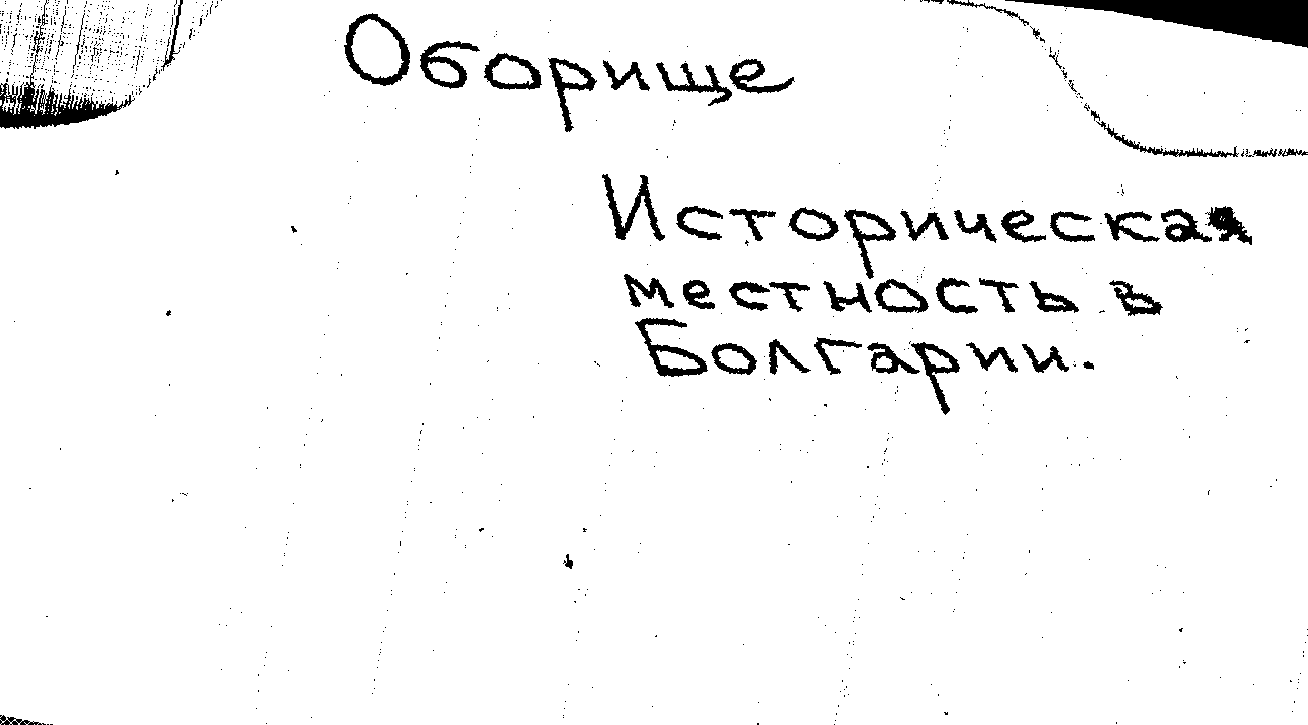 Оборище
Историческая
местность в
Болгарии.